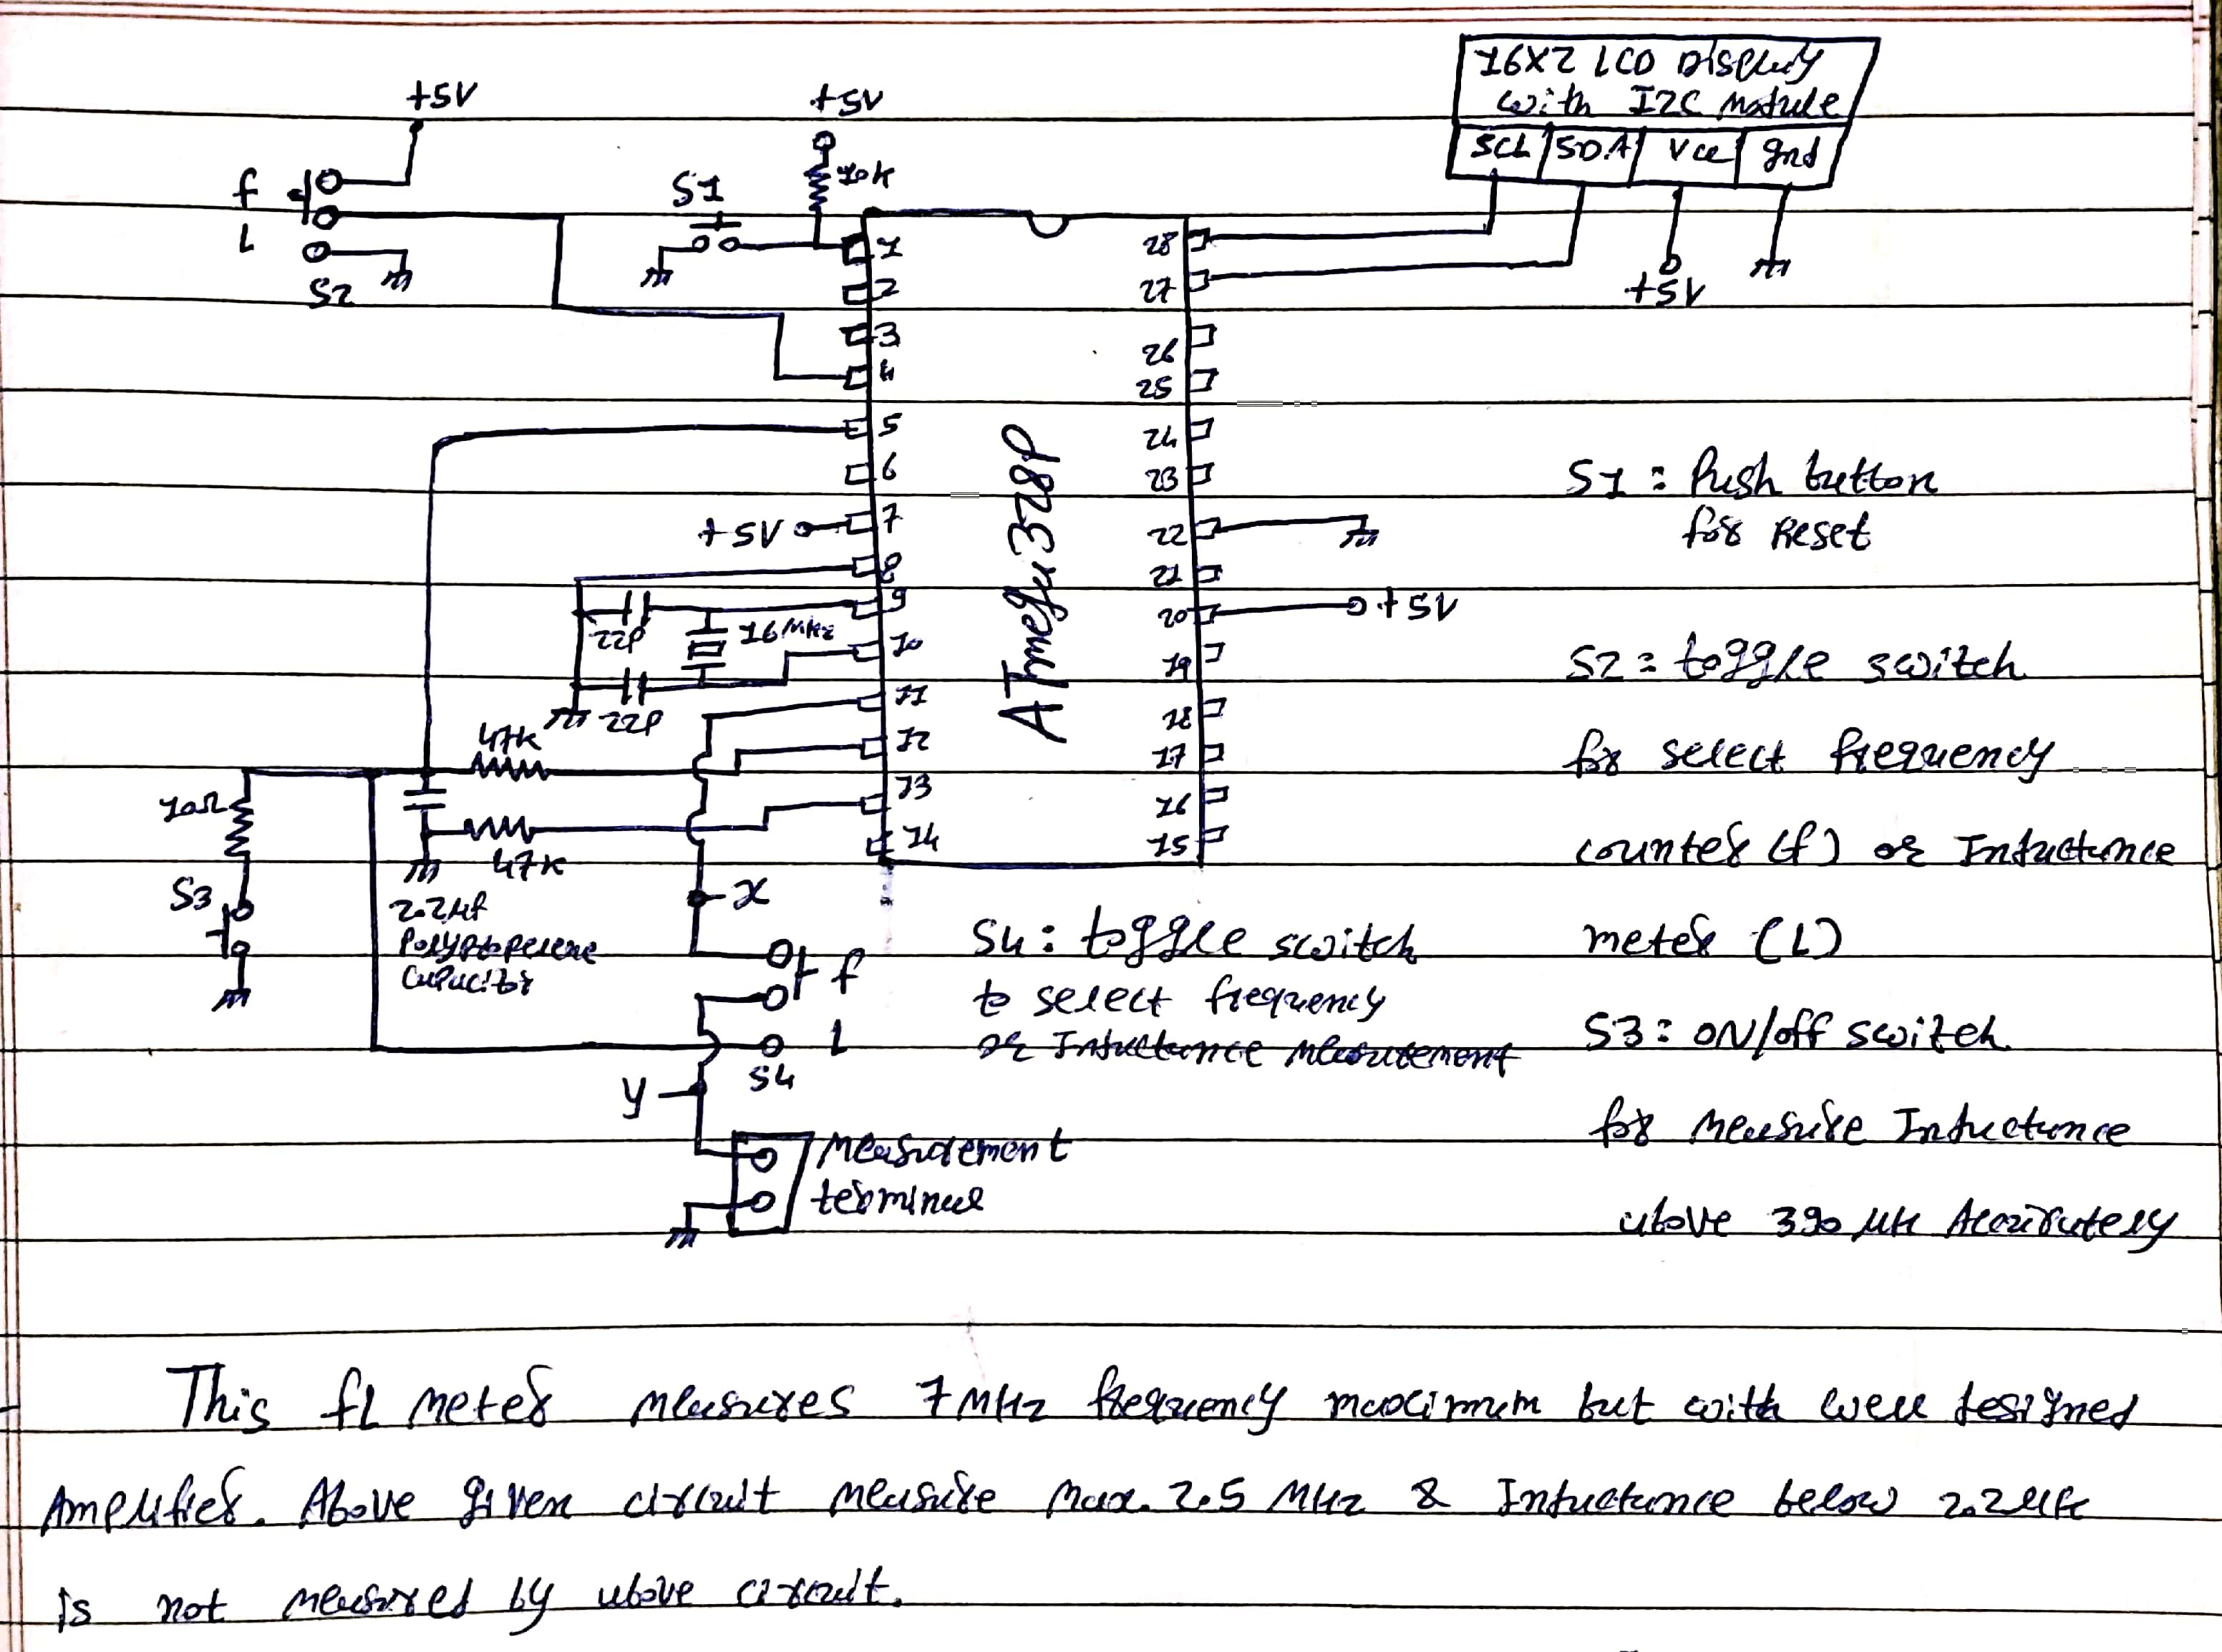 16X2 LCD Display
with I2C Module
SCL SDA Vcc gnd
+5V
+5V
+5V
f
L
S2
S1
10K
1
2
3
4
5
6
7
8
9
10
11
12
13
14
28
27
26
25
24
23
22
21
20
19
18
17
16
15
ATmega328P
+5V
+5V
22P
16MHz
22P
47K
47K
10Ω
S3
2.2µf
Polypropelene
Capacitor
x
f
L
S4
y
Measurement
terminal
S1 : Push button
for Reset
S2 : toggle switch
for select frequency
counter (f) or Inductance
meter (L)
S3 : ON/off switch
for measure Inductance
above 390 µH Accurately
S4 : toggle switch
to select frequency
or Inductance Measurement
This fL meter measures 7MHz frequency maximum but with well designed
Amplifier. Above given circuit measure max. 2.5 MHz & Inductance below 2.2µH
is not measured by above circuit.